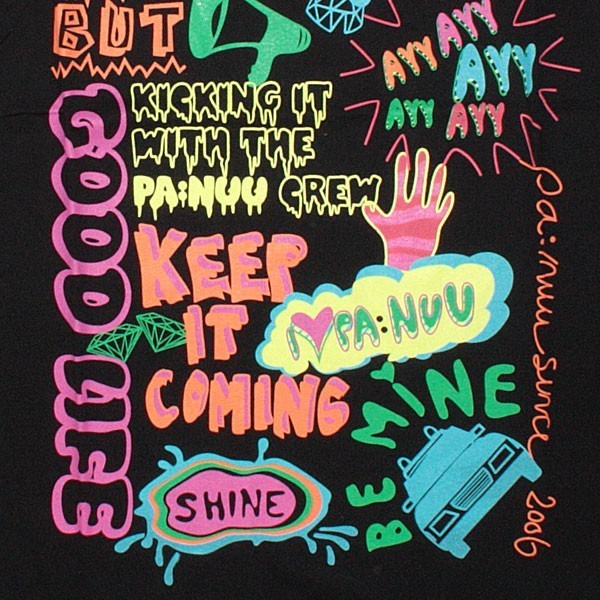 BUT
AYY
AYY
AYY
AYY
AYY
GOOD LIFE
KICKING IT
WITH THE
PA:NUU CREW
KEEP
IT
COMING
I PA:NUU
BE MiNE
SHINE
pa:nuu since 2006